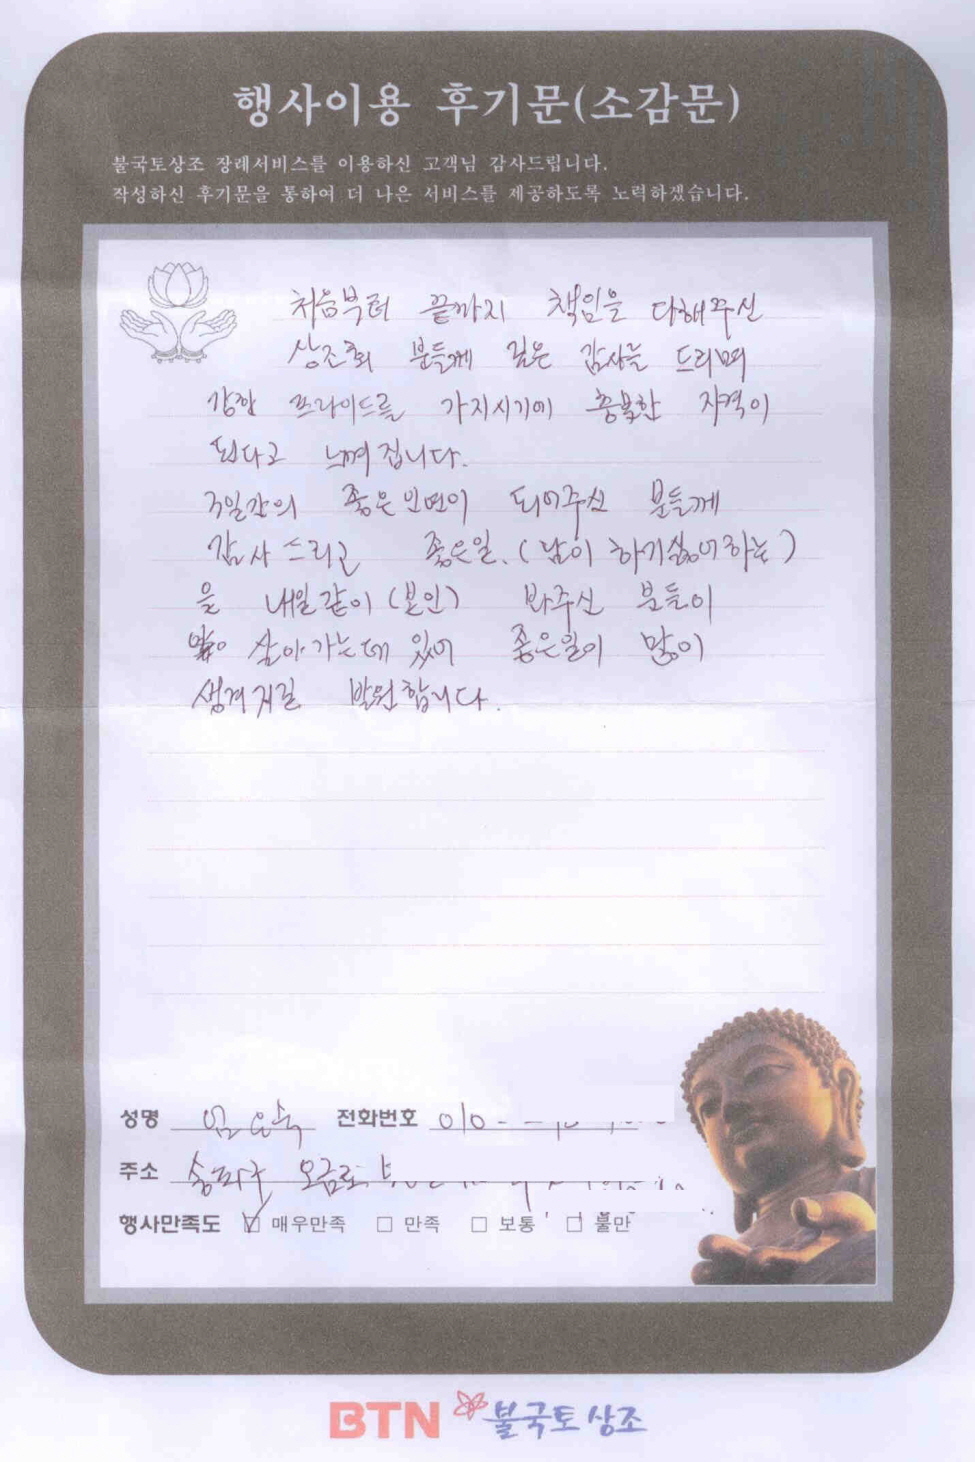 행사이용 후기문(소감문)
불국토상조 장례서비스를 이용하신 고객님 감사드립니다.
작성하신 후기문을 통하여 더 나은 서비스를 제공하도록 노력하겠습니다.
처음부터 끝까지 책임을 다해주신
상조회 분들께 깊은 감사를 드리며
강한 프라이드를 가지시기에 충분한 자격이
된다고 느껴집니다.
3일간의 좋은인연이 되어주신 분들께
감사드리고 좋은일.(남이 하기싫어하는)
을 내일같이(본인) 봐주신 분들이
살아가는데 있어 좋은일이 많이
생겨지길 발원합니다.
성명 전화번호 010-
주소 송파구 오금로
행사만족도 ☑ 매우만족 □ 만족 □ 보통 □ 불만
BTN 불국토상조